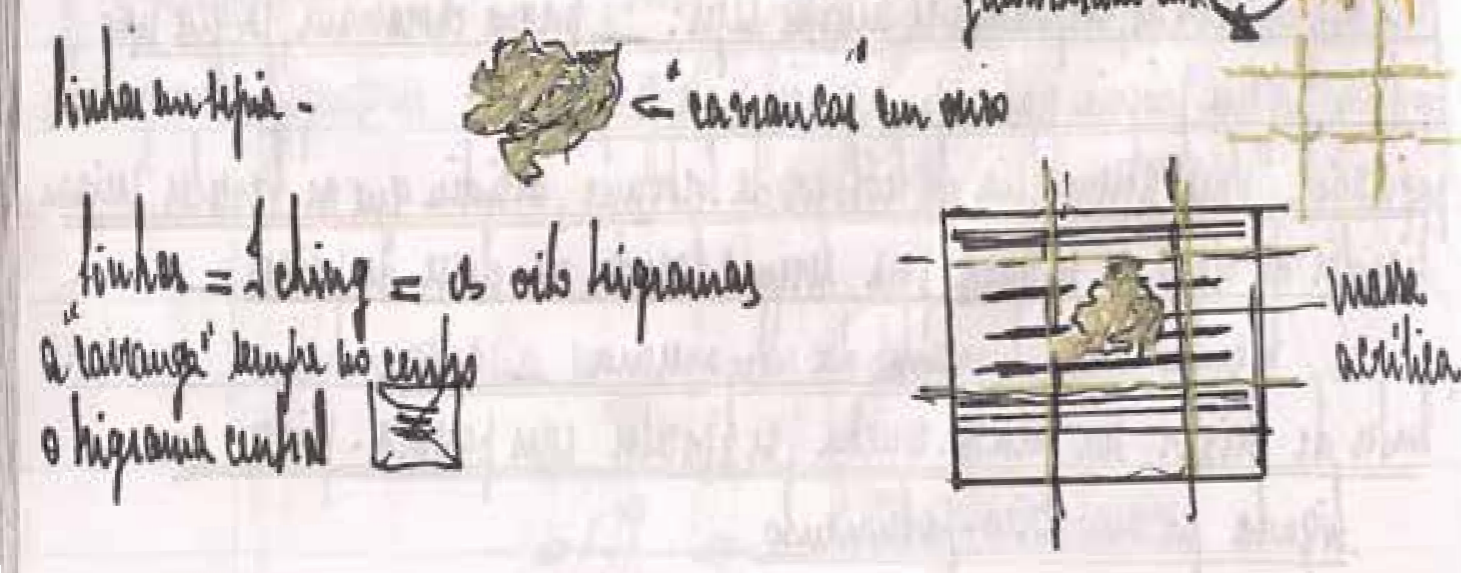 linhas em sépia -
← "carrancas" em ouro
linhas = I ching = os oito trigramas
a "carranca" sempre no centro
o trigrama central
massa
acrílica